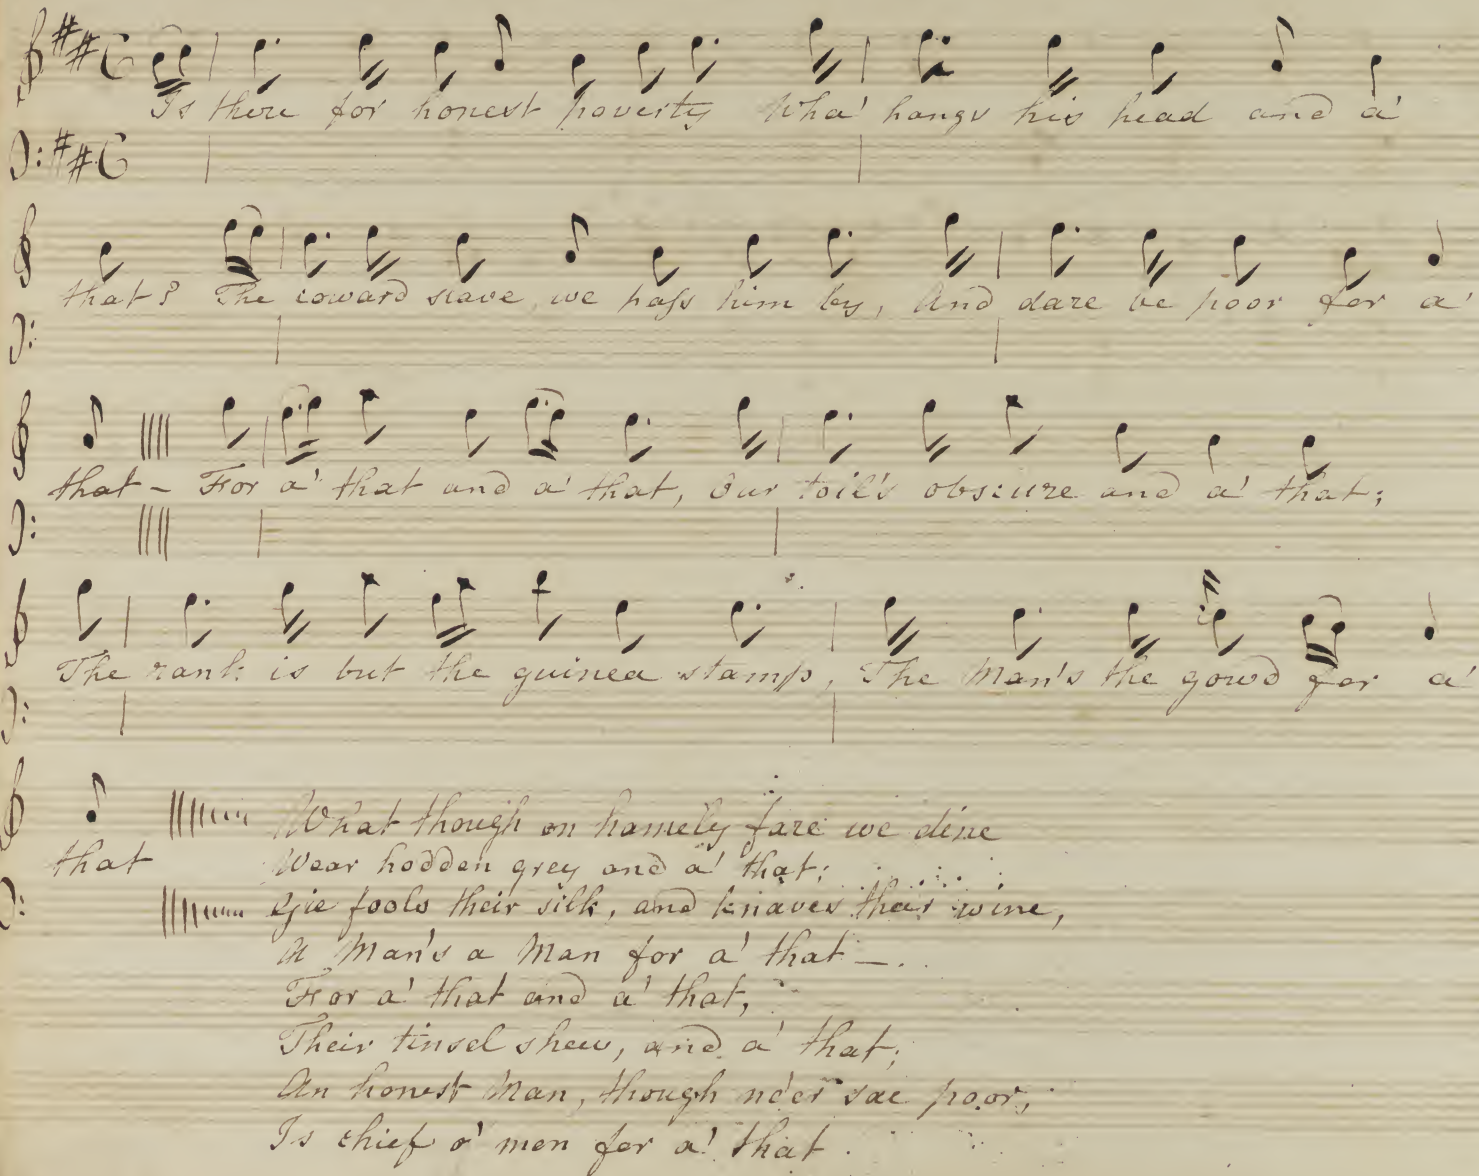 Is there for honest poverty Wha' hangs his head and a'
that? The coward slave we pass him by, And dare be poor for a'
that – For a' that and a' that, Our toil's obscure and a' that;
The rank is but the guinea stamp, The Man's the gowd for a'
that
What though on hamely fare we dine
Wear hodden grey and a' that;
Gie fools their silk, and knaves their wine,
A Man's a Man for a' that –.
For a' that and a' that,
Their tinsel shew, and a' that;
An honest Man, though ne'er sae poor,
Is chief o' men for a' that.